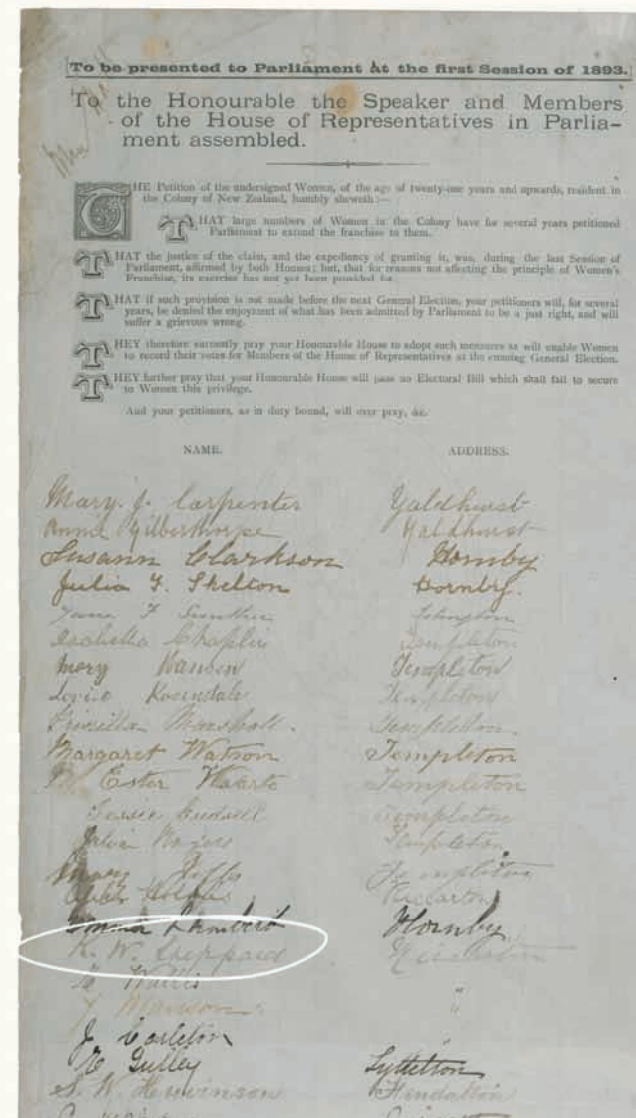 To be presented to Parliament at the first Session of 1893.
To the Honourable the Speaker and Members
of the House of Representatives in Parlia-
ment assembled.
THE Petition of the undersigned Women, of the age of twenty-one years and upwards, resident in
the Colony of New Zealand, humbly sheweth:—
THAT large numbers of Women in the Colony have for several years petitioned
Parliament to extend the franchise to them.
THAT the justice of the claim, and the expediency of granting it, was, during the last Session of
Parliament, affirmed by both Houses; but, that for reasons not affecting the principle of Women's
Franchise, its exercise has not yet been provided for.
THAT if such provision is not made before the next General Election, your petitioners will, for several
years, be denied the enjoyment of what has been admitted by Parliament to be a just right, and will
suffer a grievous wrong.
THEY therefore earnestly pray your Honourable House to adopt such measures as will enable Women
to record their votes for Members of the House of Representatives at the ensuing General Election.
THEY further pray that your Honourable House will pass no Electoral Bill which shall fail to secure
to Women this privilege.
And your petitioners, as in duty bound, will ever pray, &c.
NAME. ADDRESS.
Mary. J. Carpenter Yaldhurst
Annie Gilberthorpe Yaldhurst
Susann Clarkson Hornby
Julia F. Shelton Hornby.
Isabella Chaplin Templeton
Mary Hansen Templeton
Louisa Templeton
Priscilla Marshall. Templeton
Margaret Watson Templeton
Ester Templeton
Templeton
Julia Templeton
Mary Templeton
Riccarton
Emma Lambert Hornby
K. W. Sheppard Riccarton
Wallis
Manson "
J Carleton "
Gulley Lyttelton
S. W.